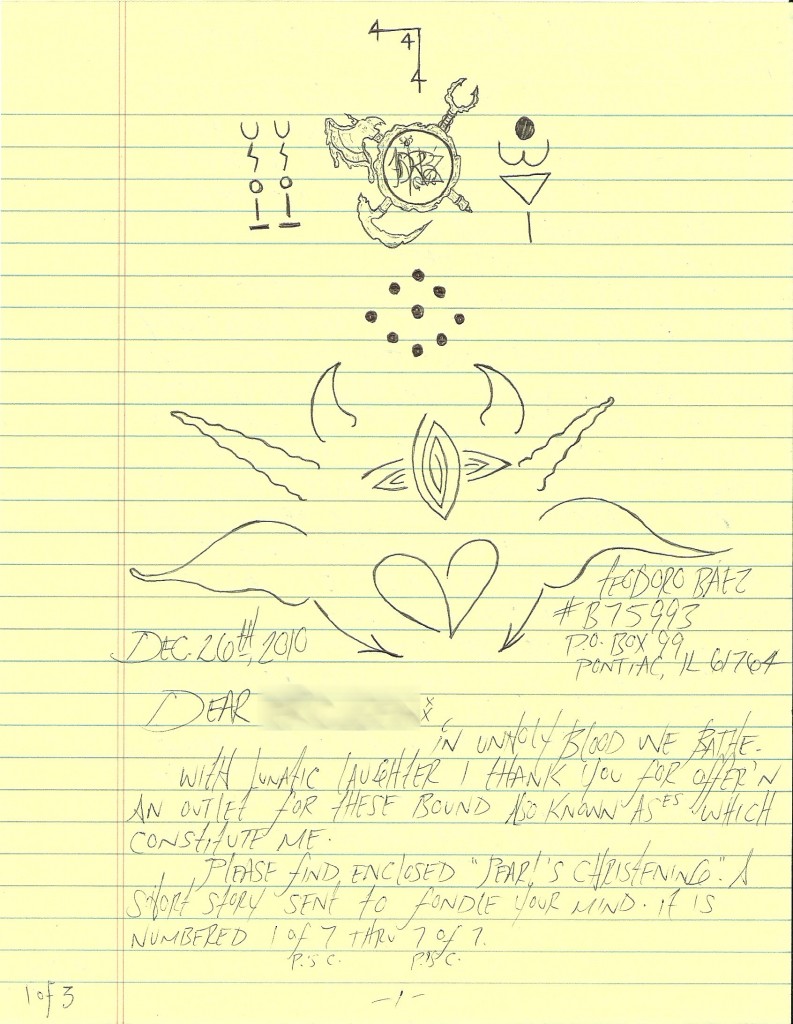 4
4
4
TEODORO BÁEZ
#B75993
P.O. BOX 99
PONTIAC, IL 61764
DEC. 26TH, 2010
DEAR
IN UNHOLY BLOOD WE BATHE.
WITH LUNATIC LAUGHTER I THANK YOU FOR OFFER'N
AN OUTLET FOR THESE BOUND ALSO KNOWN AS'ES WHICH
CONSTITUTE ME.
PLEASE FIND ENCLOSED "PEARL'S CHRISTENING". A
SHORT STORY SENT TO FONDLE YOUR MIND. IT IS
NUMBERED 1 of 7 THRU 7 of 7.
P.S.C. P.S.C.
1 of 3
-1-